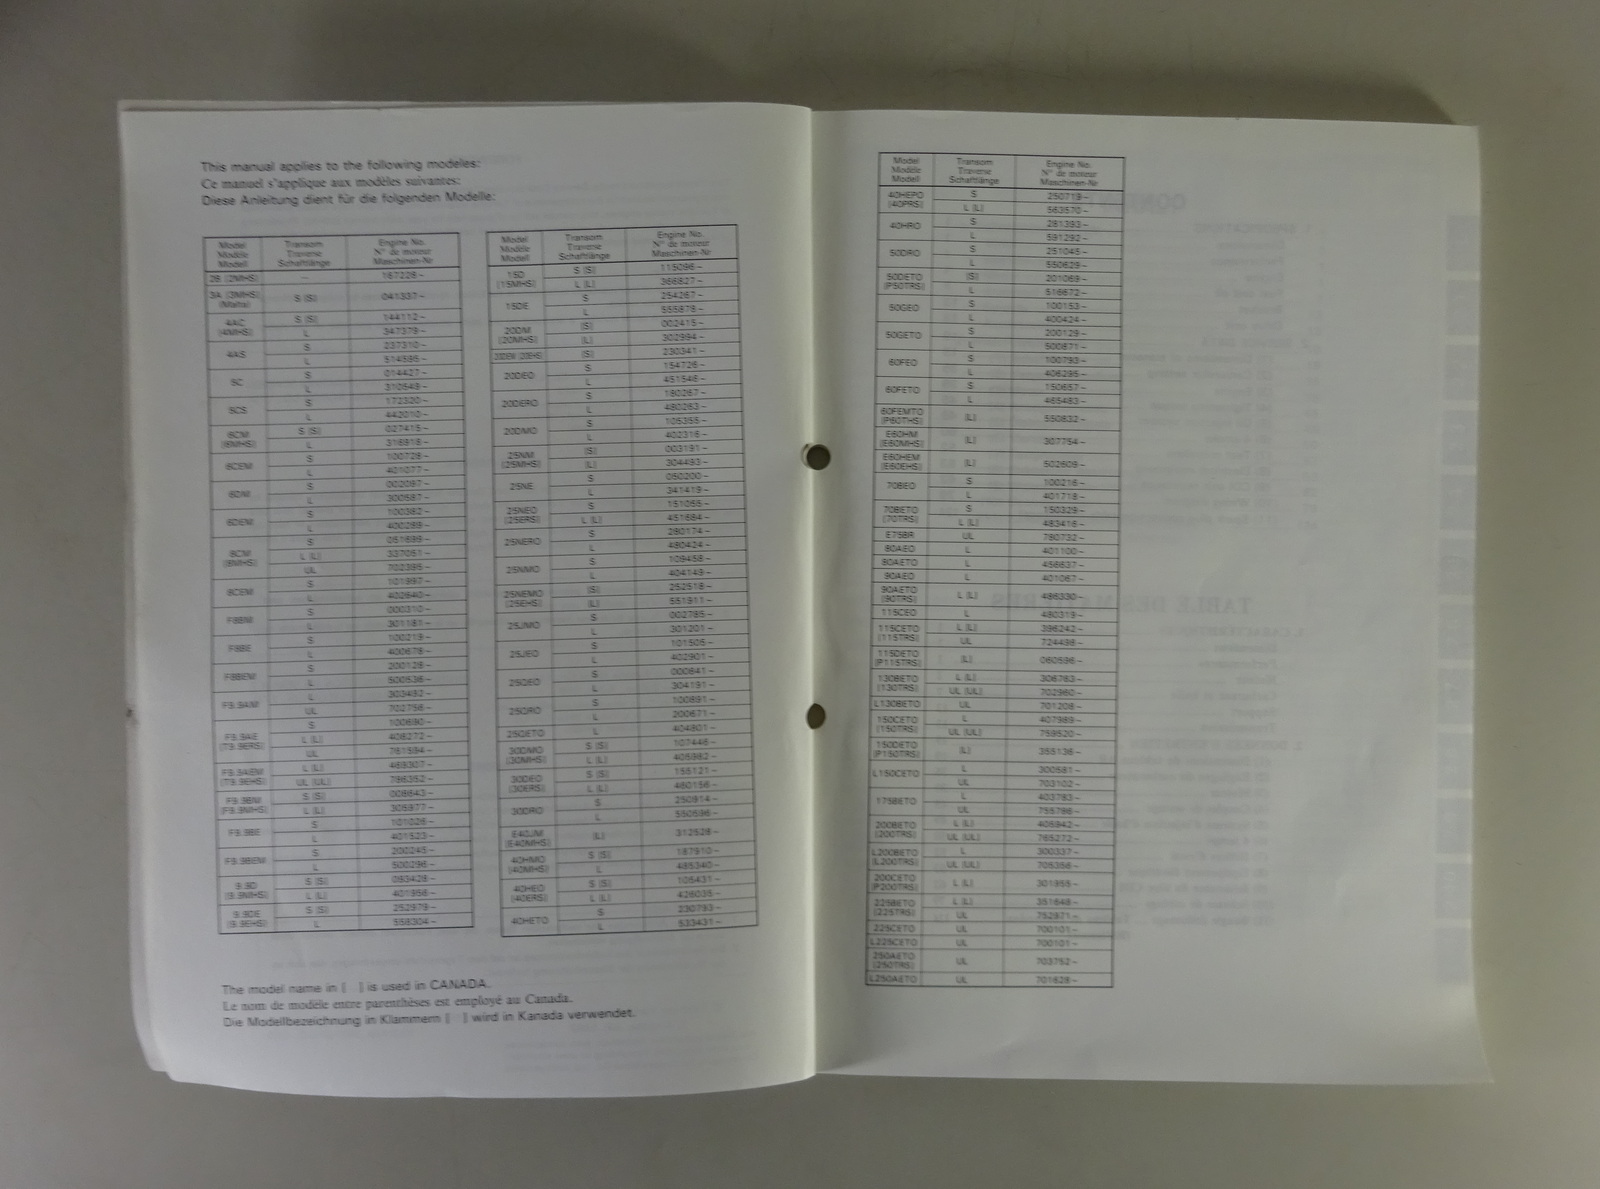 This manual applies to the following modeles:
Ce manuel s'applique aux modèles suivantes:
Diese Anleitung dient für die folgenden Modelle:
Model Modèle Modell
Transom Traverse Schaftlänge
Engine No. N° de moteur Maschinen-Nr
2B (2MHS) — 167228~
3A (3MHS) (Malta) S (S) 041337~
4AC (4MHS) S (S) 144112~
L 347379~
4AS S 237310~
L 514595~
5C S 014427~
L 310549~
5CS S 172320~
L 442010~
6CM (6MHS) S (S) 027415~
L 316918~
6CEM S 100728~
L 401077~
6DM S
L 300587~
6DEM S 100382~
L
8CM (8MHS) S
L (L) 337051~
UL 702395~
8CEM S 101997~
L 402640~
F8BM S 000310~
L 301181~
F8BE S 100219~
L 400678~
F8BEM S 200128~
L 500536~
F9.9AM L 303492~
UL 702756~
F9.9AE (T9.9ERS) S 100690~
L (L) 408272~
UL 781594~
F9.9AEM (T9.9EHS) L (L) 469307~
UL (UL) 796352~
F9.9BM (F9.9MHS) S (S) 008643~
L (L) 305977~
F9.9BE S 101026~
L 401523~
F9.9BEM S 200245~
L 500296~
9.9D (9.9MHS) S (S) 093429~
L (L) 401956~
9.9DE (9.9EHS) S (S) 252979~
L 558304~
Model Modèle Modell
Transom Traverse Schaftlänge
Engine No. N° de moteur Maschinen-Nr
15D (15MHS) S (S) 115096~
L (L) 366827~
15DE S 254267~
L 555878~
20DM (20MHS) (S) 002415~
(L) 302994~
20DEM (20EHS) (S) 230341~
20DEO S 154726~
L 451546~
20DERO S 180267~
L 480263~
20DMO S 105355~
L 402316~
25NM (25MHS) (S) 003191~
(L) 304493~
25NE S 050200~
L 341419~
25NEO (25ERS) S 151055~
L (L) 451684~
25NERO S 280174~
L 480424~
25NMO S 109458~
L 404149~
25NEMO (25EHS) (S) 252518~
(L) 551911~
25JMO S 002795~
L 301201~
25JEO S 101505~
L 402901~
25QEO S 000841~
L 304191~
25QRO S 100891~
L 200671~
25QETO L 404801~
30DMO (30MHS) S (S) 107446~
L (L) 406982~
30DEO (30ERS) S (S) 155121~
L (L) 460156~
30DRO S 250914~
L 550696~
E40JM (E40MHS) (L) 312528~
40HMO (40MHS) S (S) 187910~
L 485340~
40HEO (40ERS) S (S) 105431~
L (L) 426035~
40HETO S 230793~
L 533431~
The model name in ( ) is used in CANADA.
Le nom de modèle entre parenthèses est employé au Canada.
Die Modellbezeichnung in Klammern ( ) wird in Kanada verwendet.
Model Modèle Modell
Transom Traverse Schaftlänge
Engine No. N° de moteur Maschinen-Nr
40HEPO (40PRS) S 250719~
L (L) 563570~
40HRO S 281393~
L 591292~
50DRO S 251045~
L 550629~
50DETO (P50TRS) (S) 201069~
L 516672~
50GEO S 100153~
L 400424~
50GETO S 200129~
L 500871~
60FEO S 100793~
L 406295~
60FETO S 150657~
L 465483~
60FEMTO (P60THS) (L) 550832~
E60HM (E60MHS) (L) 307754~
E60HEM (E60EHS) (L) 502609~
70BEO S 100216~
L 401718~
70BETO (70TRS) S 150329~
L (L) 483416~
E75BR UL 780732~
80AEO L 401100~
80AETO L 456837~
90AEO L 401067~
90AETO (90TRS) L (L) 486330~
115CEO L 480319~
115CETO (115TRS) L (L) 396242~
UL 724498~
115DETO (P115TRS) (L) 060596~
130BETO (130TRS) L (L) 306783~
UL (UL) 702960~
L130BETO UL 701208~
150CETO (150TRS) L 407989~
UL (UL) 759520~
150DETO (P150TRS) (L) 355136~
L150CETO L 300581~
UL 703102~
175BETO L 403783~
UL 755798~
200BETO (200TRS) L (L) 405942~
UL (UL) 765272~
L200BETO (L200TRS) L 300337~
UL (UL) 705356~
200CETO (P200TRS) L (L) 301955~
225BETO (225TRS) L (L) 351648~
UL 752971~
225CETO UL 700101~
L225CETO UL 700101~
250AETO (250TRS) UL 703752~
L250AETO UL 701628~